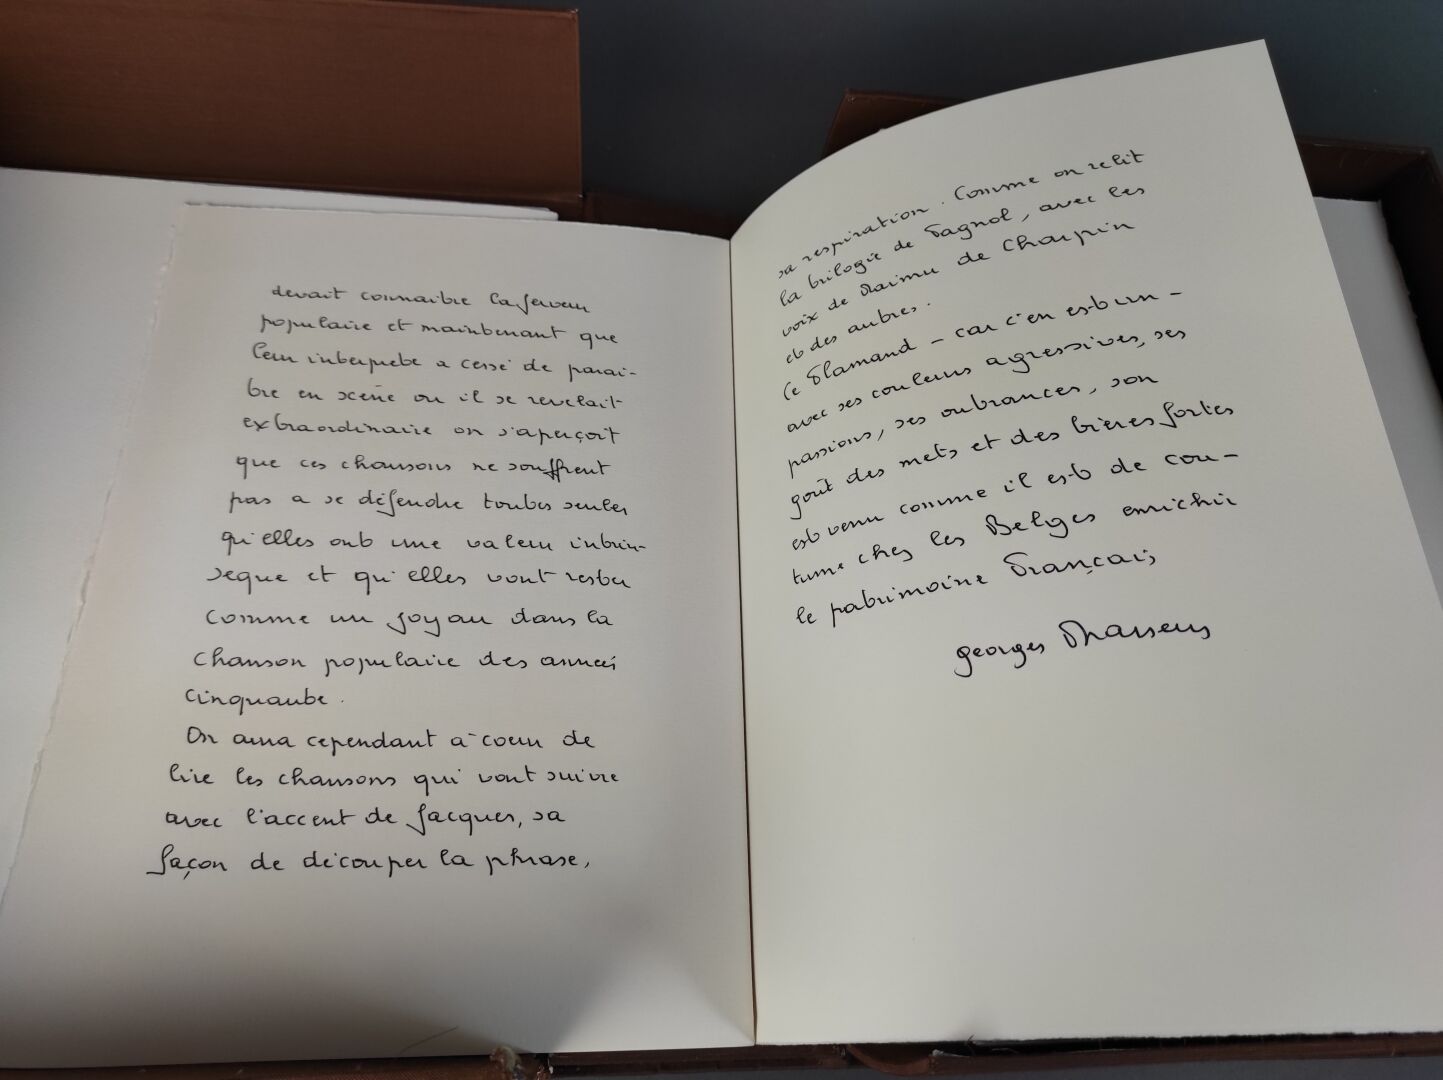 devait connaitre la ferveur
populaire et maintenant que
leur interprete a cessé de parai-
tre en scène ou il se revelait
extraordinaire on s'aperçoit
que ces chansons ne souffrent
pas a se défendre toutes seules
qu'elles ont une valeur intrin-
seque et qu'elles vont rester
comme un joyau dans la
chanson populaire des années
cinquante.
On aura cependant à coeur de
lire les chansons qui vont suivre
avec l'accent de Jacques, sa
façon de découper la phrase,
sa respiration. Comme on relit
la trilogie de Pagnol, avec les
voix de Raimu de Charpin
et des autres.
Ce Flamand - car c'en est un -
avec ses couleurs agressives, ses
passions, ses outrances, son
goût des mets et des bières fortes
est venu comme il est de cou-
tume chez les Belges enrichir
le patrimoine Français
georges Brassens